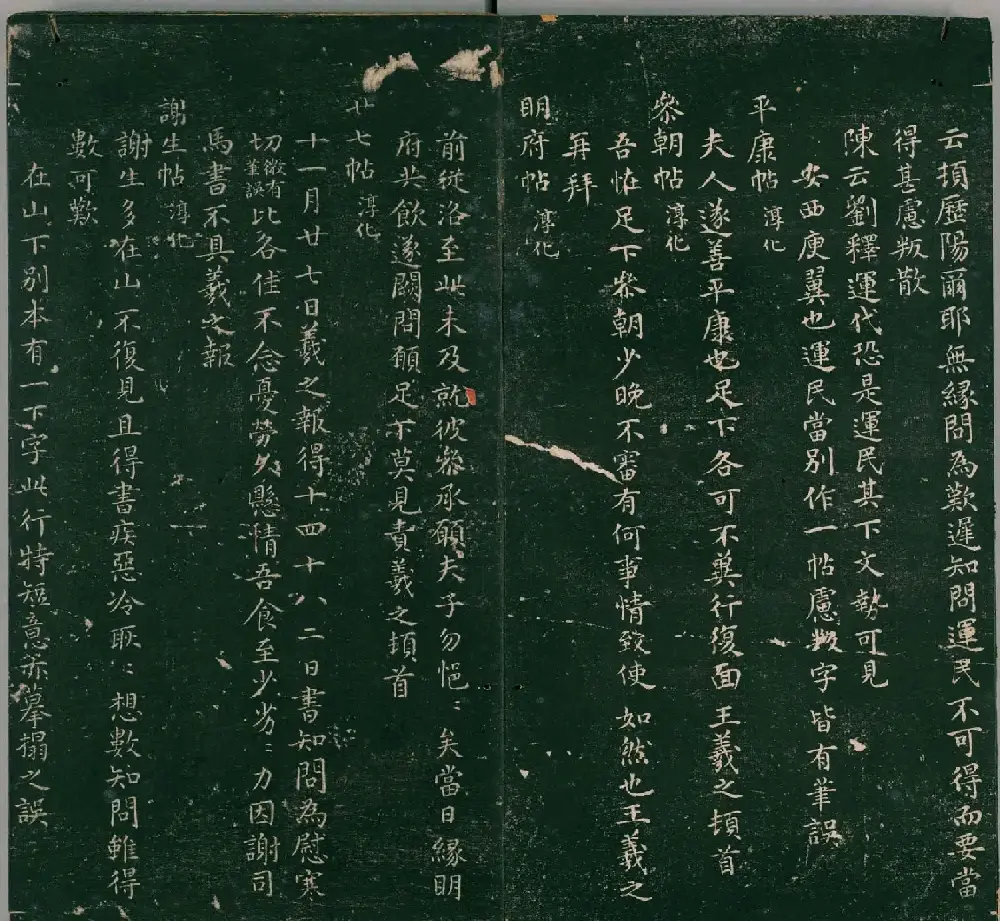 云頓歷陽爾耶無緣問為歎遲知問運民不可得而要當
得甚慮叛散
陳云劉釋運代恐是運民其下文勢可見
安西庾翼也運民當別作一帖慮數字皆有筆誤
平康帖 淳化
夫人遂善平康也足下各可不冀行復面王羲之頓首
參朝帖 淳化
吾怪足下參朝少晚不審有何事情致使 如然也王羲之
再拜
明府帖 淳化
前從洛至此未及就彼參承願夫子勿悒:矣當日緣明
府共飲遂闕問願足下莫見責羲之頓首
廿七帖 淳化
十一月廿七日羲之報得十四十八二日書知問為慰寒
切微有筆誤比各佳不念憂勞久懸情吾食至少劣:力因謝司
馬書不具羲之報
謝生帖 淳化
謝生多在山不復見且得書疾惡冷耿:想數知問雖得
數可歎
在山下別本有一下字此行特短意亦摹搨之誤